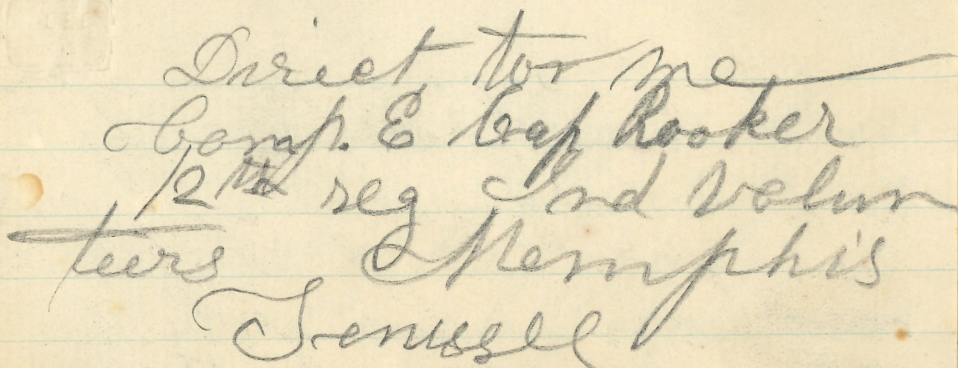 Direct tor me
Comp. E Cap Rooker
12th reg Ind Volun
teers Memphis
Tenussee